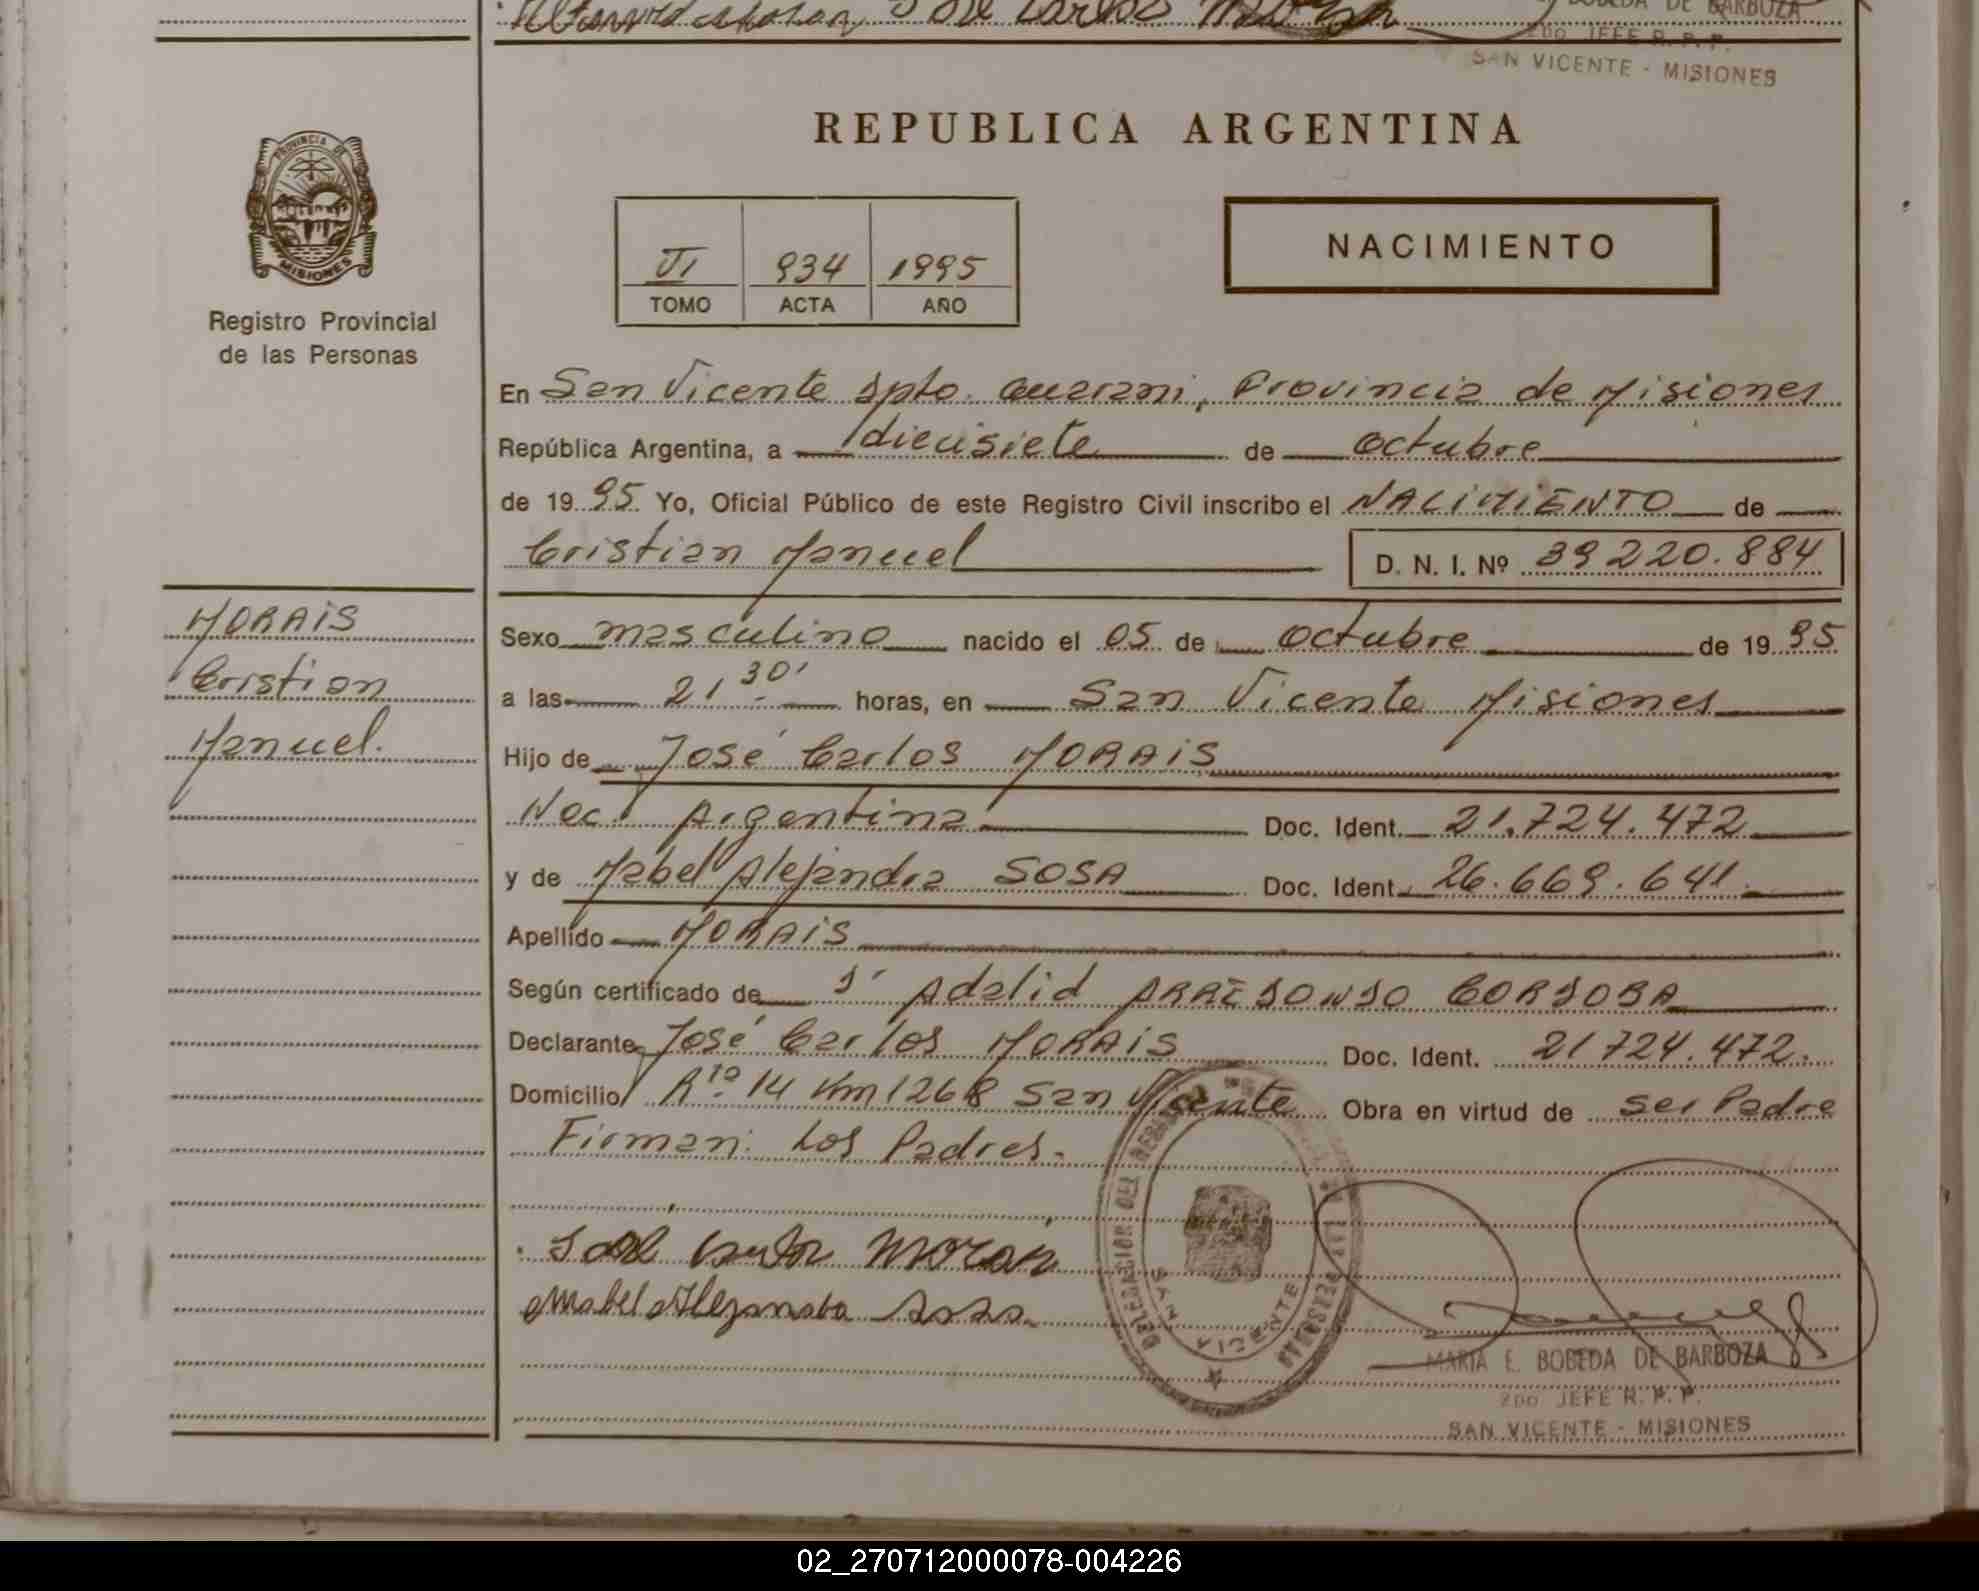 José Carlos
BOBEDA DE BARBOZA
2DO JEFE R. P. P.
SAN VICENTE - MISIONES
REPUBLICA ARGENTINA
PROVINCIA DE
MISIONES
Registro Provincial
de las Personas
VI 934 1995
TOMO ACTA AÑO
NACIMIENTO
En San Vicente Dpto. Guarani, Provincia de Misiones
República Argentina, a diecisiete de Octubre
de 1995 Yo, Oficial Público de este Registro Civil inscribo el NACIMIENTO de
Cristian Manuel D. N. I. Nº 39220.884
MORAIS
Cristian
Manuel.
Sexo masculino nacido el 05 de Octubre de 1995
a las 21 30' horas, en San Vicente Misiones
Hijo de José Carlos MORAIS
Nac. Argentina Doc. Ident. 21.724.472
y de Mabel Alejandra SOSA Doc. Ident. 26.669.641.
Apellido MORAIS
Según certificado de Adalid CORDOBA
Declarante José Carlos MORAIS Doc. Ident. 21724.472.
Domicilio Rta 14 Km 1268 San Vicente Obra en virtud de ser Padre
Firman: Los Padres.
DELEGACION DEL REGISTRO
SAN VICENTE
Mabel Alejandra Sosa
MARIA E. BOBEDA DE BARBOZA
2DO JEFE R. P. P.
SAN VICENTE - MISIONES
02_270712000078-004226